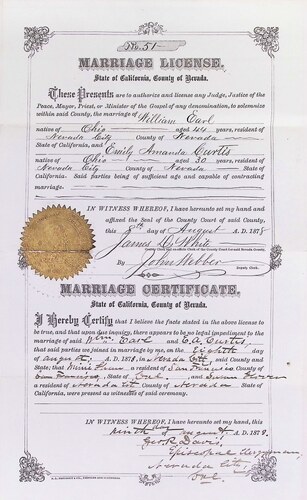 No. 51
MARRIAGE LICENSE.
State of California, County of Nevada.
These Presents are to authorize and license any Judge, Justice of the
Peace, Mayor, Priest, or Minister of the Gospel of any denomination, to solemnize
within said County, the marriage of William Earl
native of Ohio aged 44 years, resident of
Nevada City County of Nevada State of
California, and Emily Amanda Curtis
native of Ohio aged 30 years, resident of
Nevada City County of Nevada State of
California. Said parties being of sufficient age and capable of contracting
marriage.
IN WITNESS WHEREOF, I have hereunto set my hand and
affixed the Seal of the County Court of said County,
this 8th day of August A. D. 1878
James D. White
By John Webber
Deputy Clerk.
MARRIAGE CERTIFICATE.
State of California, County of Nevada.
I Hereby Certify that I believe the facts stated in the above license
to be true, and that upon due inquiry, there appears to be no legal impediment to the
marriage of said Wm. Earl and E. A. Curtis,
that said parties were joined in marriage by me, on the Eighth day
of August A. D. 1878, in Nevada City said County and
State; that a resident of San Francisco County of
San Francisco, State of Cal, and
a resident of Nevada City, County of Nevada State of
California, were present as witnesses of said ceremony.
IN WITNESS WHEREOF, I have hereunto set my hand, this
ninth day of August A. D. 1878.
Geo. R. Davis,
Episcopal Clergyman,
Nevada City,
Cal